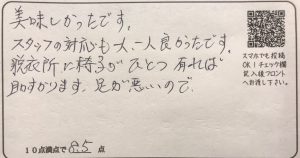 美味しかったです。
スタッフの対応も大人良かったです。
脱衣所に椅子がひとつ有れば
助かります。足が悪いので。
スマホでも投稿
OK!チェック欄
記入後フロント
へお渡し下さい。
10点満点で 85 点